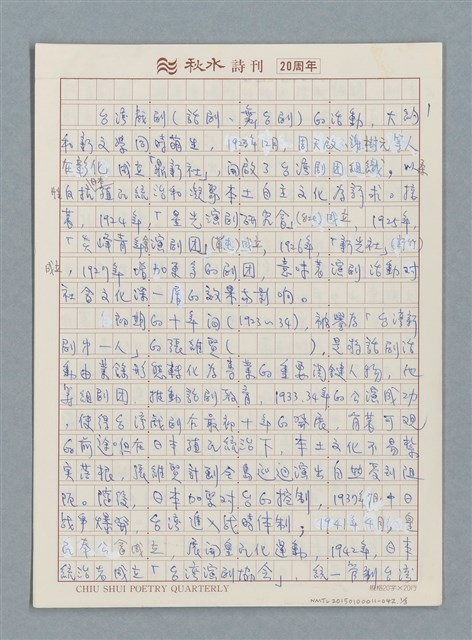 秋水詩刊 20周年
1
台湾戲剧(話剧、舞台剧)的活動,大約
和新文學同時萌生,1923年12月,周天啟、謝樹元等人
在彰化成立「鼎新社」,開啟了台湾剧团組織,以
日本
自抗殖民統治和凝聚本土自主文化為訴求。接
著,1924年,「星光演剧研究會」(台北)成立,1925年
「炎峰青年演剧团」成立,1926年「新光社」
成立,1927年增加更多的剧团,意味著演剧活動对
社會文化深一層的效果与影响。
初期的十年间(1923~34),被譽為「台湾新
剧第一人」的張維賢( ),是将話剧活
動由業餘形態轉化為專業的重要関鍵人物,他
籌組剧团,推動話剧教育,1933.34年的公演成功
,使得台湾戲剧在最初十年的發展,有著可观
的前途。但在日本殖民統治下,本土文化不易紮
实落根,張維賢計劃全島巡迴演出自然受到阻
碍。隨後,日本加緊对台的控制,1937年7月7日
战爭爆發,台湾進入战時体制;1941年4月,皇
民奉公會成立,展開皇民化運動,1942年,日本
統治者成立「台湾演剧協会」,統一管制台湾
CHIU SHUI POETRY QUARTERLY
規格20字×20行
NMTL20150100011-042.35